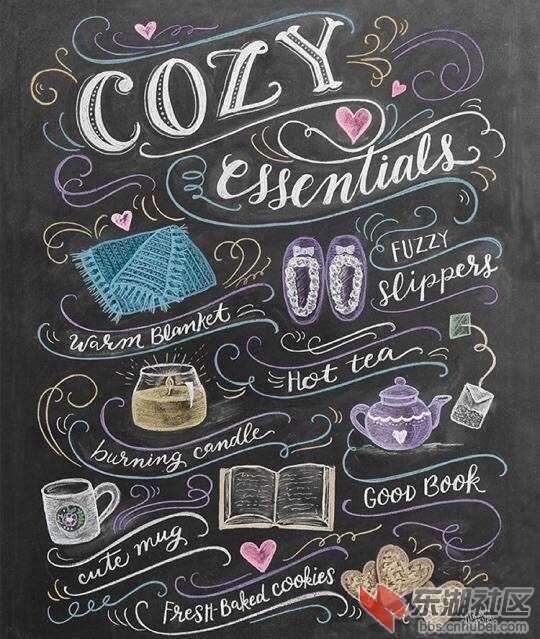 COZY
essentials
FUZZY
slippers
Warm Blanket
Hot tea
burning candle
GOOD BOOK
cute mug
FRESH-BAKED COOKIES
东湖社区
bbs.cnhubei.com